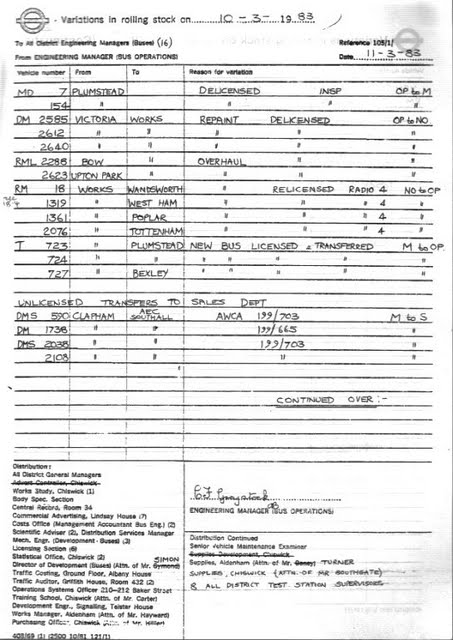 - Variations in rolling stock on 10-3-1983
To All District Engineering Managers (Buses) (16)
Reference 105/1/
From ENGINEERING MANAGER (BUS OPERATIONS)
Date 11-3-83
Vehicle number From To Reason for variation
MD 7 PLUMSTEAD DELICENSED INSP OP to M
154 " " " "
DM 2585 VICTORIA WORKS REPAINT DELICENSED OP to NO
2612 " " " " "
2640 " " " " "
RML 2288 BOW " OVERHAUL " "
2623 UPTON PARK " " " "
RM 18 WORKS WANDSWORTH " RELICENSED RADIO 4 NO to OP
1319 " WEST HAM " " " 4 "
1361 " POPLAR " " " 4 "
2076 " TOTTENHAM " " " 4 "
T 723 " PLUMSTEAD NEW BUS LICENSED & TRANSFERRED M to OP.
724 " " " " " " "
727 " BEXLEY " " " " "
UNLICENSED TRANSFERS TO SALES DEPT
DMS 590 CLAPHAM AEC SOUTHALL AWCA 199/703 M to S
DM 1738 " " 199/665 "
DMS 2038 " " 199/703 "
2103 " " " "
CONTINUED OVER :-
Distribution :
All District General Managers
Advert Controller, Chiswick
Works Study, Chiswick (1)
Body Spec. Section
Central Record, Room 34
Commercial Advertising, Lindsay House (7)
Costs Office (Management Accountant Bus Eng.) (2)
Scientific Adviser (2), Distribution Services Manager
Mech. Engr. (Development - Buses) (3)
Licensing Section (6)
Statistical Office, Chiswick (2)
SIMON
Director of Development (Buses) (Attn. of Mr. Symond)
Traffic Costing, Ground Floor, Albany House
Traffic Auditor, Griffith House, Room 432 (2)
Operations Systems Officer 210-212 Baker Street
Training School, Chiswick (Attn. of Mr. Carter)
Development Engr., Signalling, Telstar House
Works Manager, Aldenham (Attn. of Mr. Hayward)
Purchasing Officer, Chiswick (Attn. of Mr.
ENGINEERING MANAGER (BUS OPERATIONS)
Distribution Continued
Senior Vehicle Maintenance Examiner
Supplies Development, Chiswick
Supplies, Aldenham (Attn. of Mr. TURNER
SUPPLIES, CHISWICK (ATTN. OF MR SOUTHGATE)
& ALL DISTRICT TEST STATION SUPERVISORS